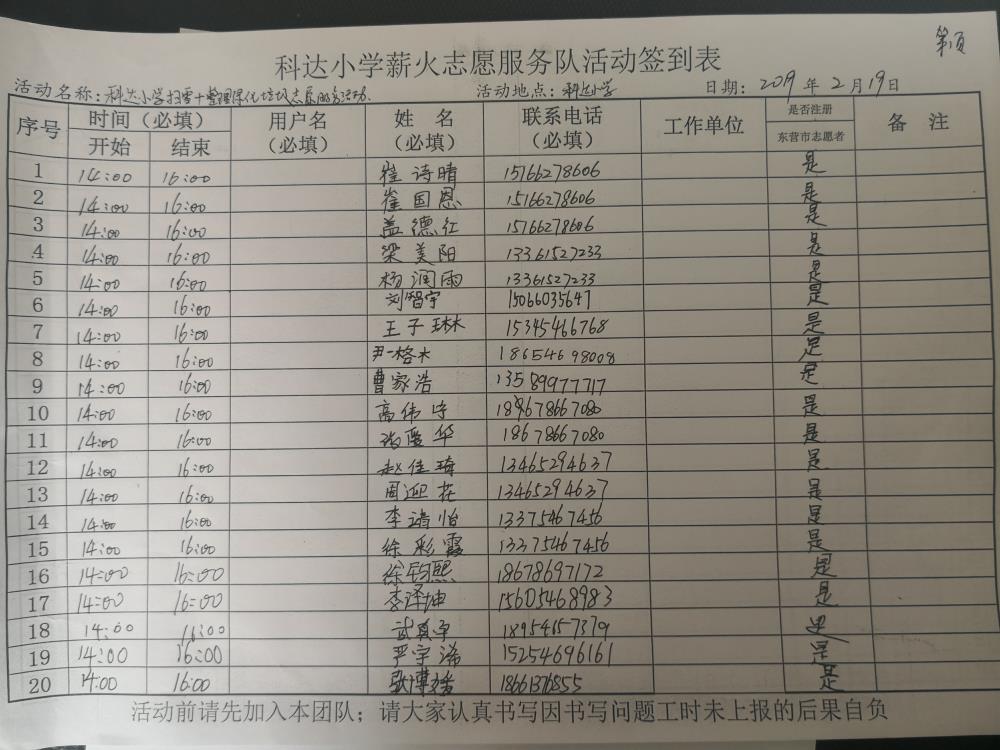 第 页
科达小学薪火志愿服务队活动签到表
活动名称：科达小学扫雪+整理绿化 志愿服务活动 活动地点：科达小学 日期：2019 年 2 月 19 日
序号 时间（必填） 用户名（必填） 姓 名（必填） 联系电话（必填） 工作单位 是否注册东营市志愿者 备 注
开始 结束
1 14:00 16:00 崔诗晴 15766278606 是
2 14:00 16:00 崔国恩 15166278606 是
3 14:00 16:00 盖德红 15766278606 是
4 14:00 16:00 梁美阳 13361527233 是
5 14:00 16:00 杨润雨 13361527233 是
6 14:00 16:00 刘智宇 15066035647 是
7 14:00 16:00 王子琳 15345466768 是
8 14:00 16:00 尹一格 18654698008 是
9 14:00 16:00 曹家浩 13589977717 是
10 14:00 16:00 高伟 18678667080 是
11 14:00 16:00 华 18678667080 是
12 14:00 16:00 赵佳琦 13465294637 是
13 14:00 16:00 周迎花 13465294637 是
14 14:00 16:00 李靖怡 13375467456 是
15 14:00 16:00 徐彩霞 13375467456 是
16 14:00 16:00 徐钧熙 18678697172 是
17 14:00 16:00 李泽坤 15605468983 是
18 14:00 16:00 武 18954657379 是
19 14:00 16:00 严宇浠 15254696161 是
20 14:00 16:00 张博 18661376855 是
活动前请先加入本团队；请大家认真书写因书写问题工时未上报的后果自负